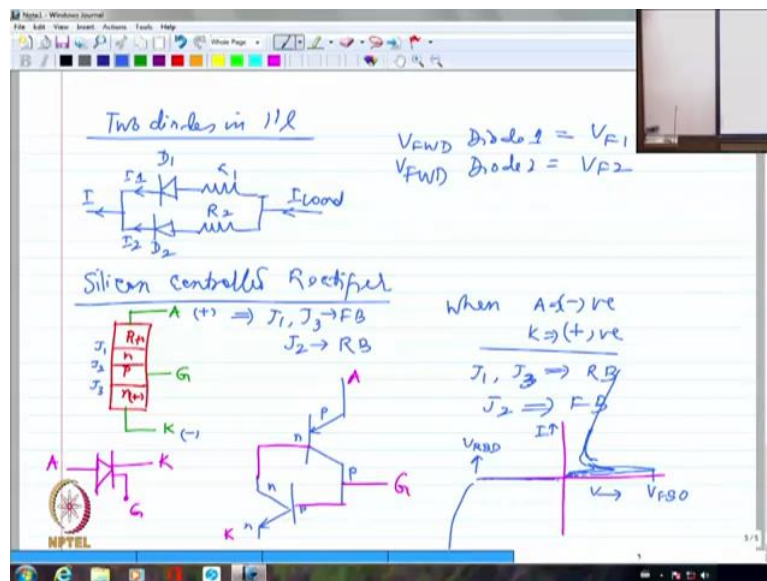 Note1 - Windows Journal
File Edit View Insert Actions Tools Help
Whole Page
B I
Two diodes in ||l
VFWD Diode 1 = VF1
VFWD Diode 2 = VF2
D1
I1
I
R2
ILoad
I2 D2
Silicon Controlled Rectifier
A (+) ⇒ J1, J3 → FB
J2 → RB
J1
n
J2
P
G
J3
n(+)
K (-)
A K
G
A
P
n
P
G
n
P
K n
When A ⇒ (-)ve
K ⇒ (+)ve
J1, J3 ⇒ RB
J2 ⇒ FB
I↑
VRBD
V→ VFBO
NPTEL
5/5